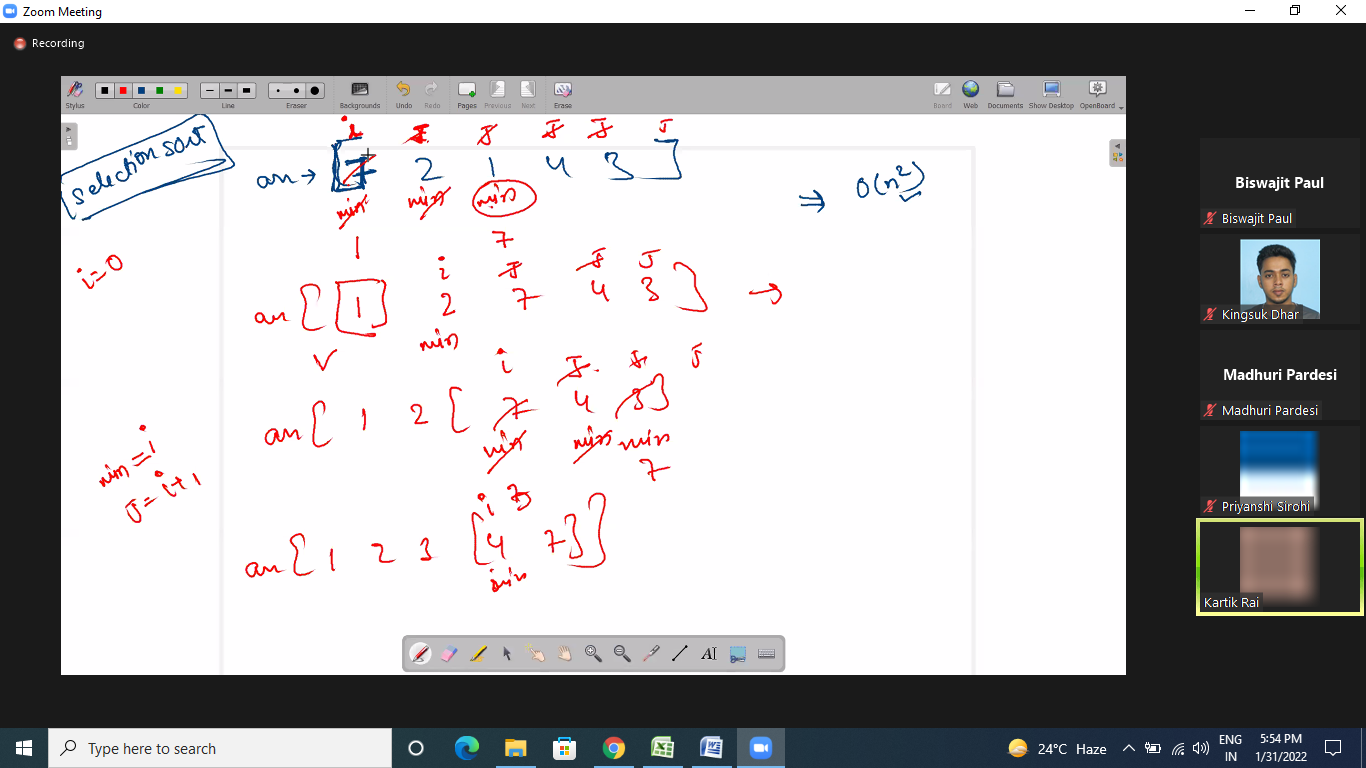 Zoom Meeting
Recording
Stylus Color Line Eraser Backgrounds Undo Redo Pages Previous Next Erase Board Web Documents Show Desktop OpenBoard
selection sort
i J J J J J
arr → [ 7 2 1 4 3 ]
min min min
⇒ O(n²)
1 7
i=0
i J J J
arr [ 1 2 7 4 3 ] →
min
i J J J
arr [ 1 2 [ 7 4 3 ]
min min min
7
min = i
J = i+1
i J
arr [ 1 2 3 [ 4 7 ] ]
min
Biswajit Paul
Biswajit Paul
Kingsuk Dhar
Madhuri Pardesi
Madhuri Pardesi
Priyanshi Sirohi
Kartik Rai
Type here to search
24°C Haze
ENG
IN
5:54 PM
1/31/2022